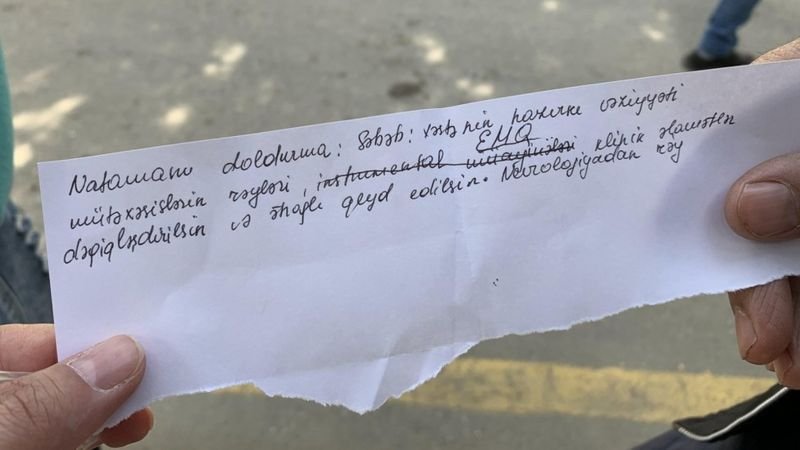 Natamam doldurma: Səbəb: xəstənin hazırkı vəziyyəti
EMQ
mütəxəsislərin rəyləri, instrumental müayinələri klinik əlamətləri
dəqiqləşdirilsin və ətraflı qeyd edilsin. Nevrologiyadan rəy